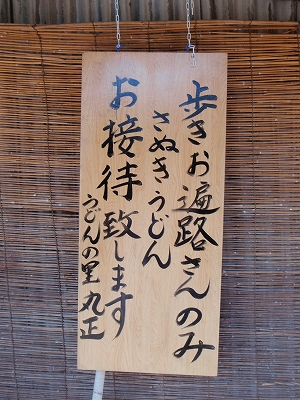 歩きお遍路さんのみ
さぬきうどん
お接待致します
うどんの里 丸正